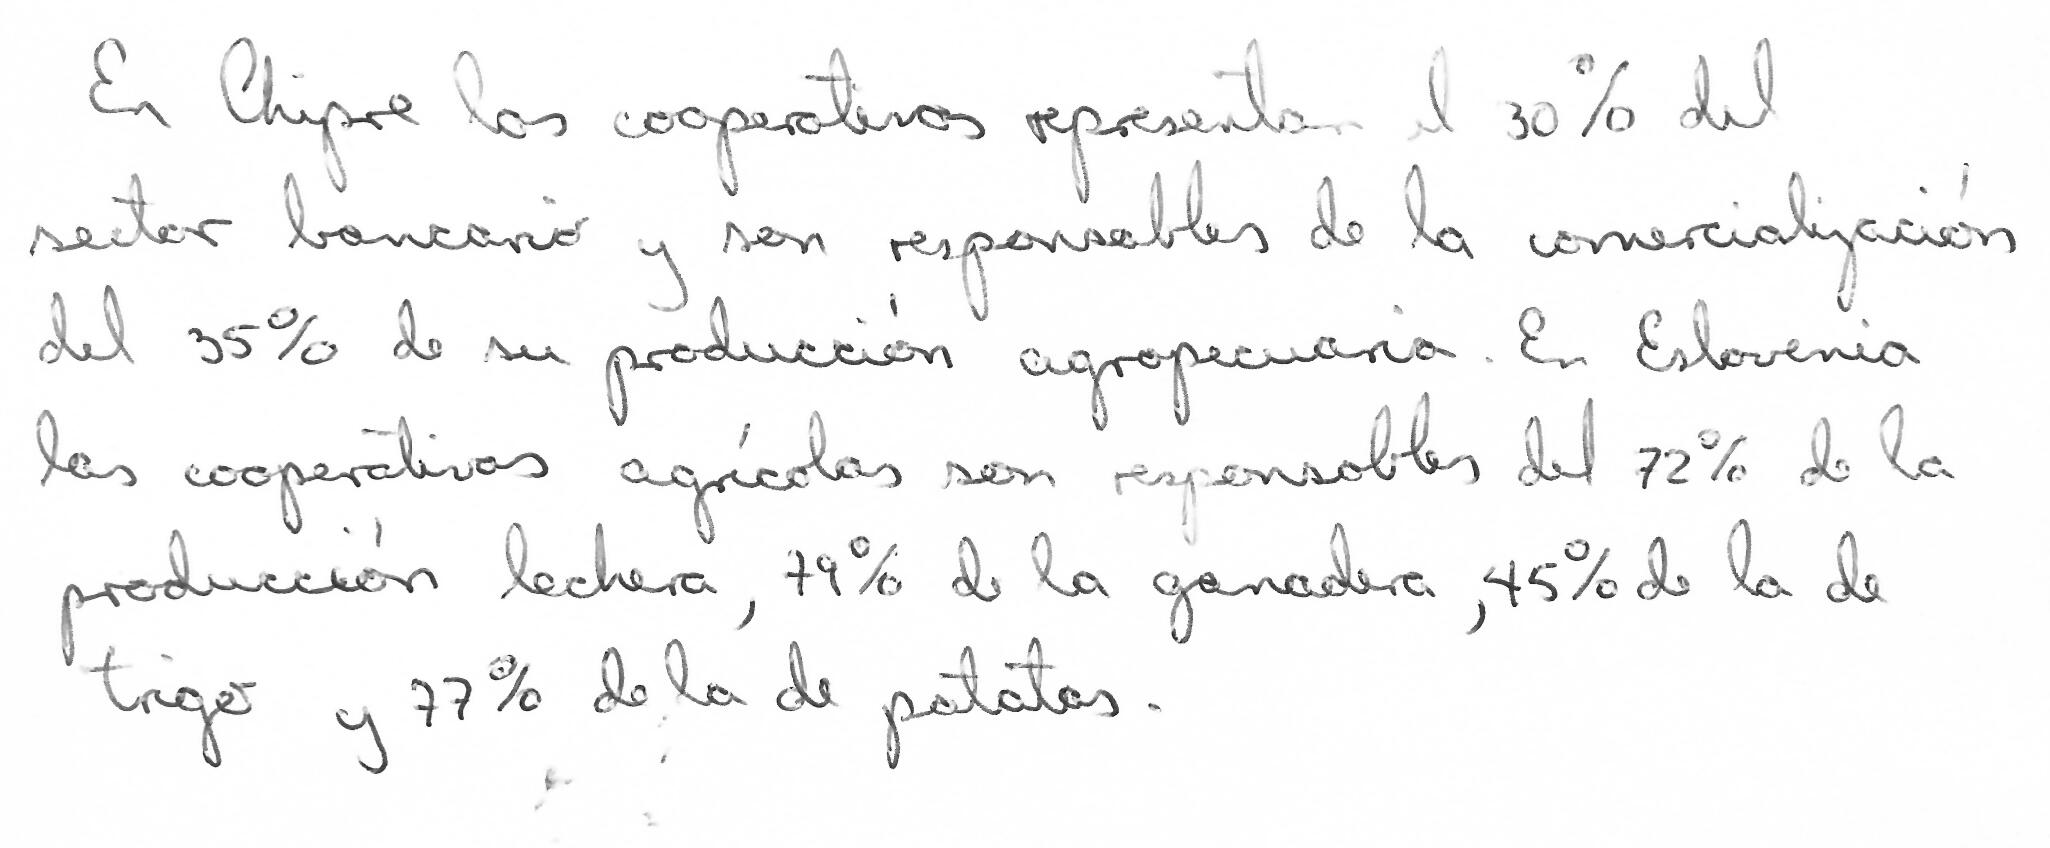 En Chipre las cooperativas representan el 30% del
sector bancario y son responsables de la comercialización
del 35% de su producción agropecuaria. En Eslovenia
las cooperativas agrícolas son responsables del 72% de la
producción lechera, 79% de la ganadera, 45% de la de
trigo y 77% de la de patatas.